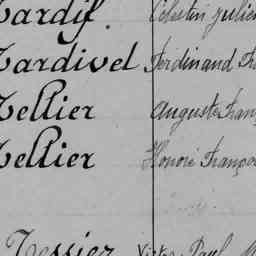 Tardif. Célestin Julien
Tardivel Ferdinand Fra
Tellier Auguste Franç
Tellier Honoré Franço
Tessier Victor Paul